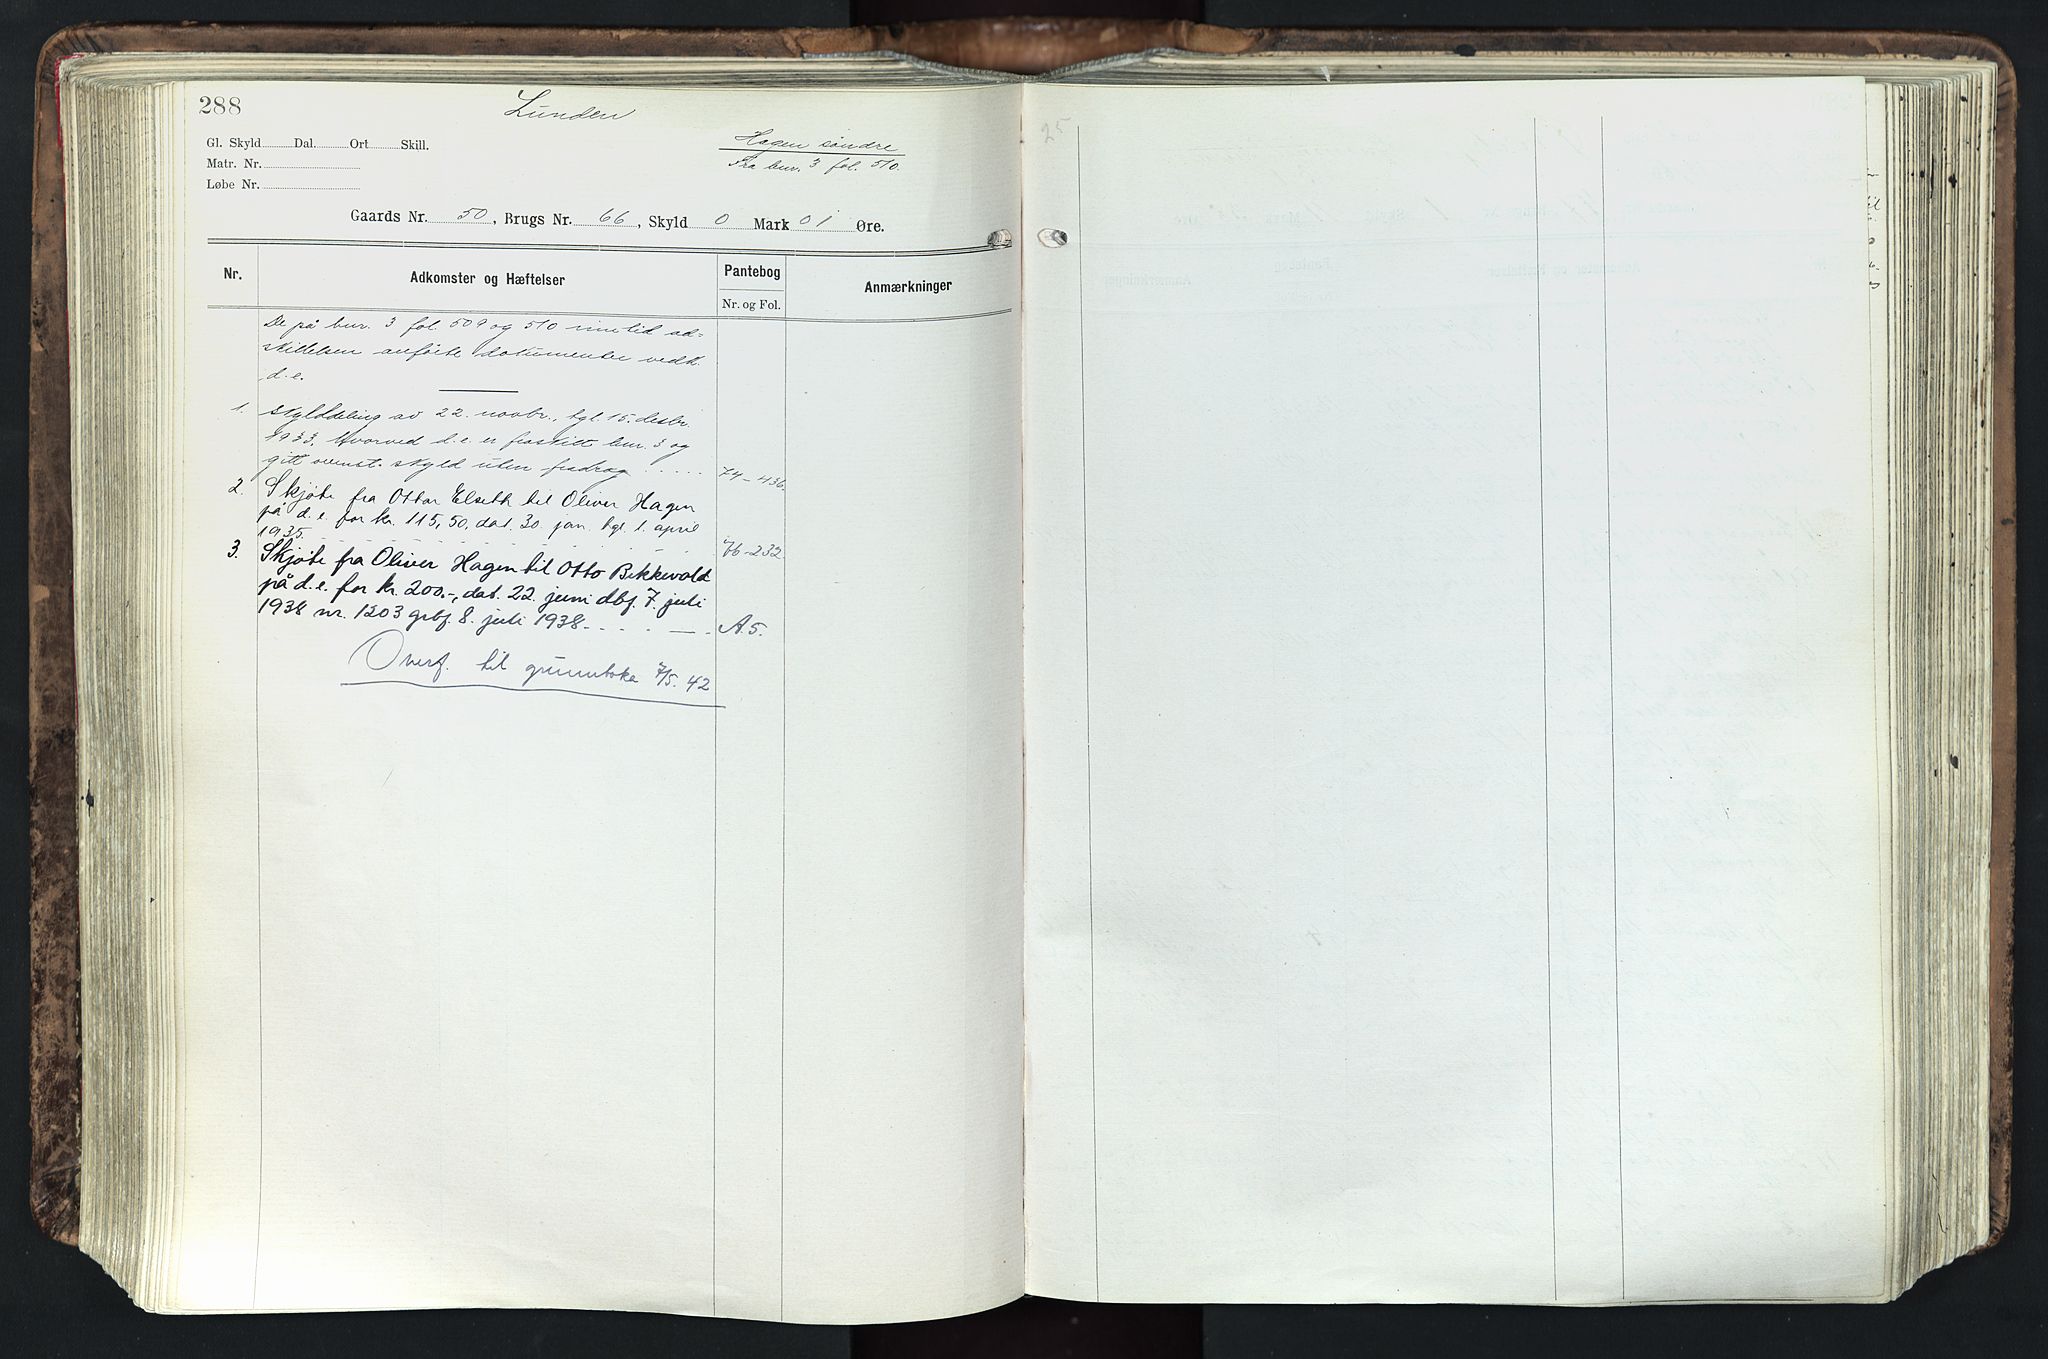 288
Lunden
Gl. Skyld Dal. Ort Skill.
Hagen søndre
Matr. Nr.
Fra bnr. 3 fol. 510.
Løbe Nr.
Gaards Nr. 50, Brugs Nr. 66, Skyld 0 Mark 01 Øre.
Nr. Adkomster og Hæftelser Pantebog Nr. og Fol. Anmærkninger
De på bnr. 3 fol. 509 og 510 inntil ad=
skillelsen anførte dokumenter vedk.
d.e.
1. Skylddeling av 22. novbr., tgl. 15. desbr.
1933, hvorved d.e. er fraskilt bnr. 3 og
gitt ovenst. skyld uten fradrag ..... 74-436.
2. Skjøte fra Ottar Elseth til Oliver Hagen
på d.e. for kr. 115,50, dat. 30. jan. tgl. 1. april
1935. 76-232
3. Skjøte fra Oliver Hagen til Otto Bekkevold
på d.e. for kr. 200.-, dat. 22. juni dbf. 7. juli
1938 nr. 1203 grbf. 8. juli 1938. A.5.
Overf. til grunnboka 7/5. 42
25